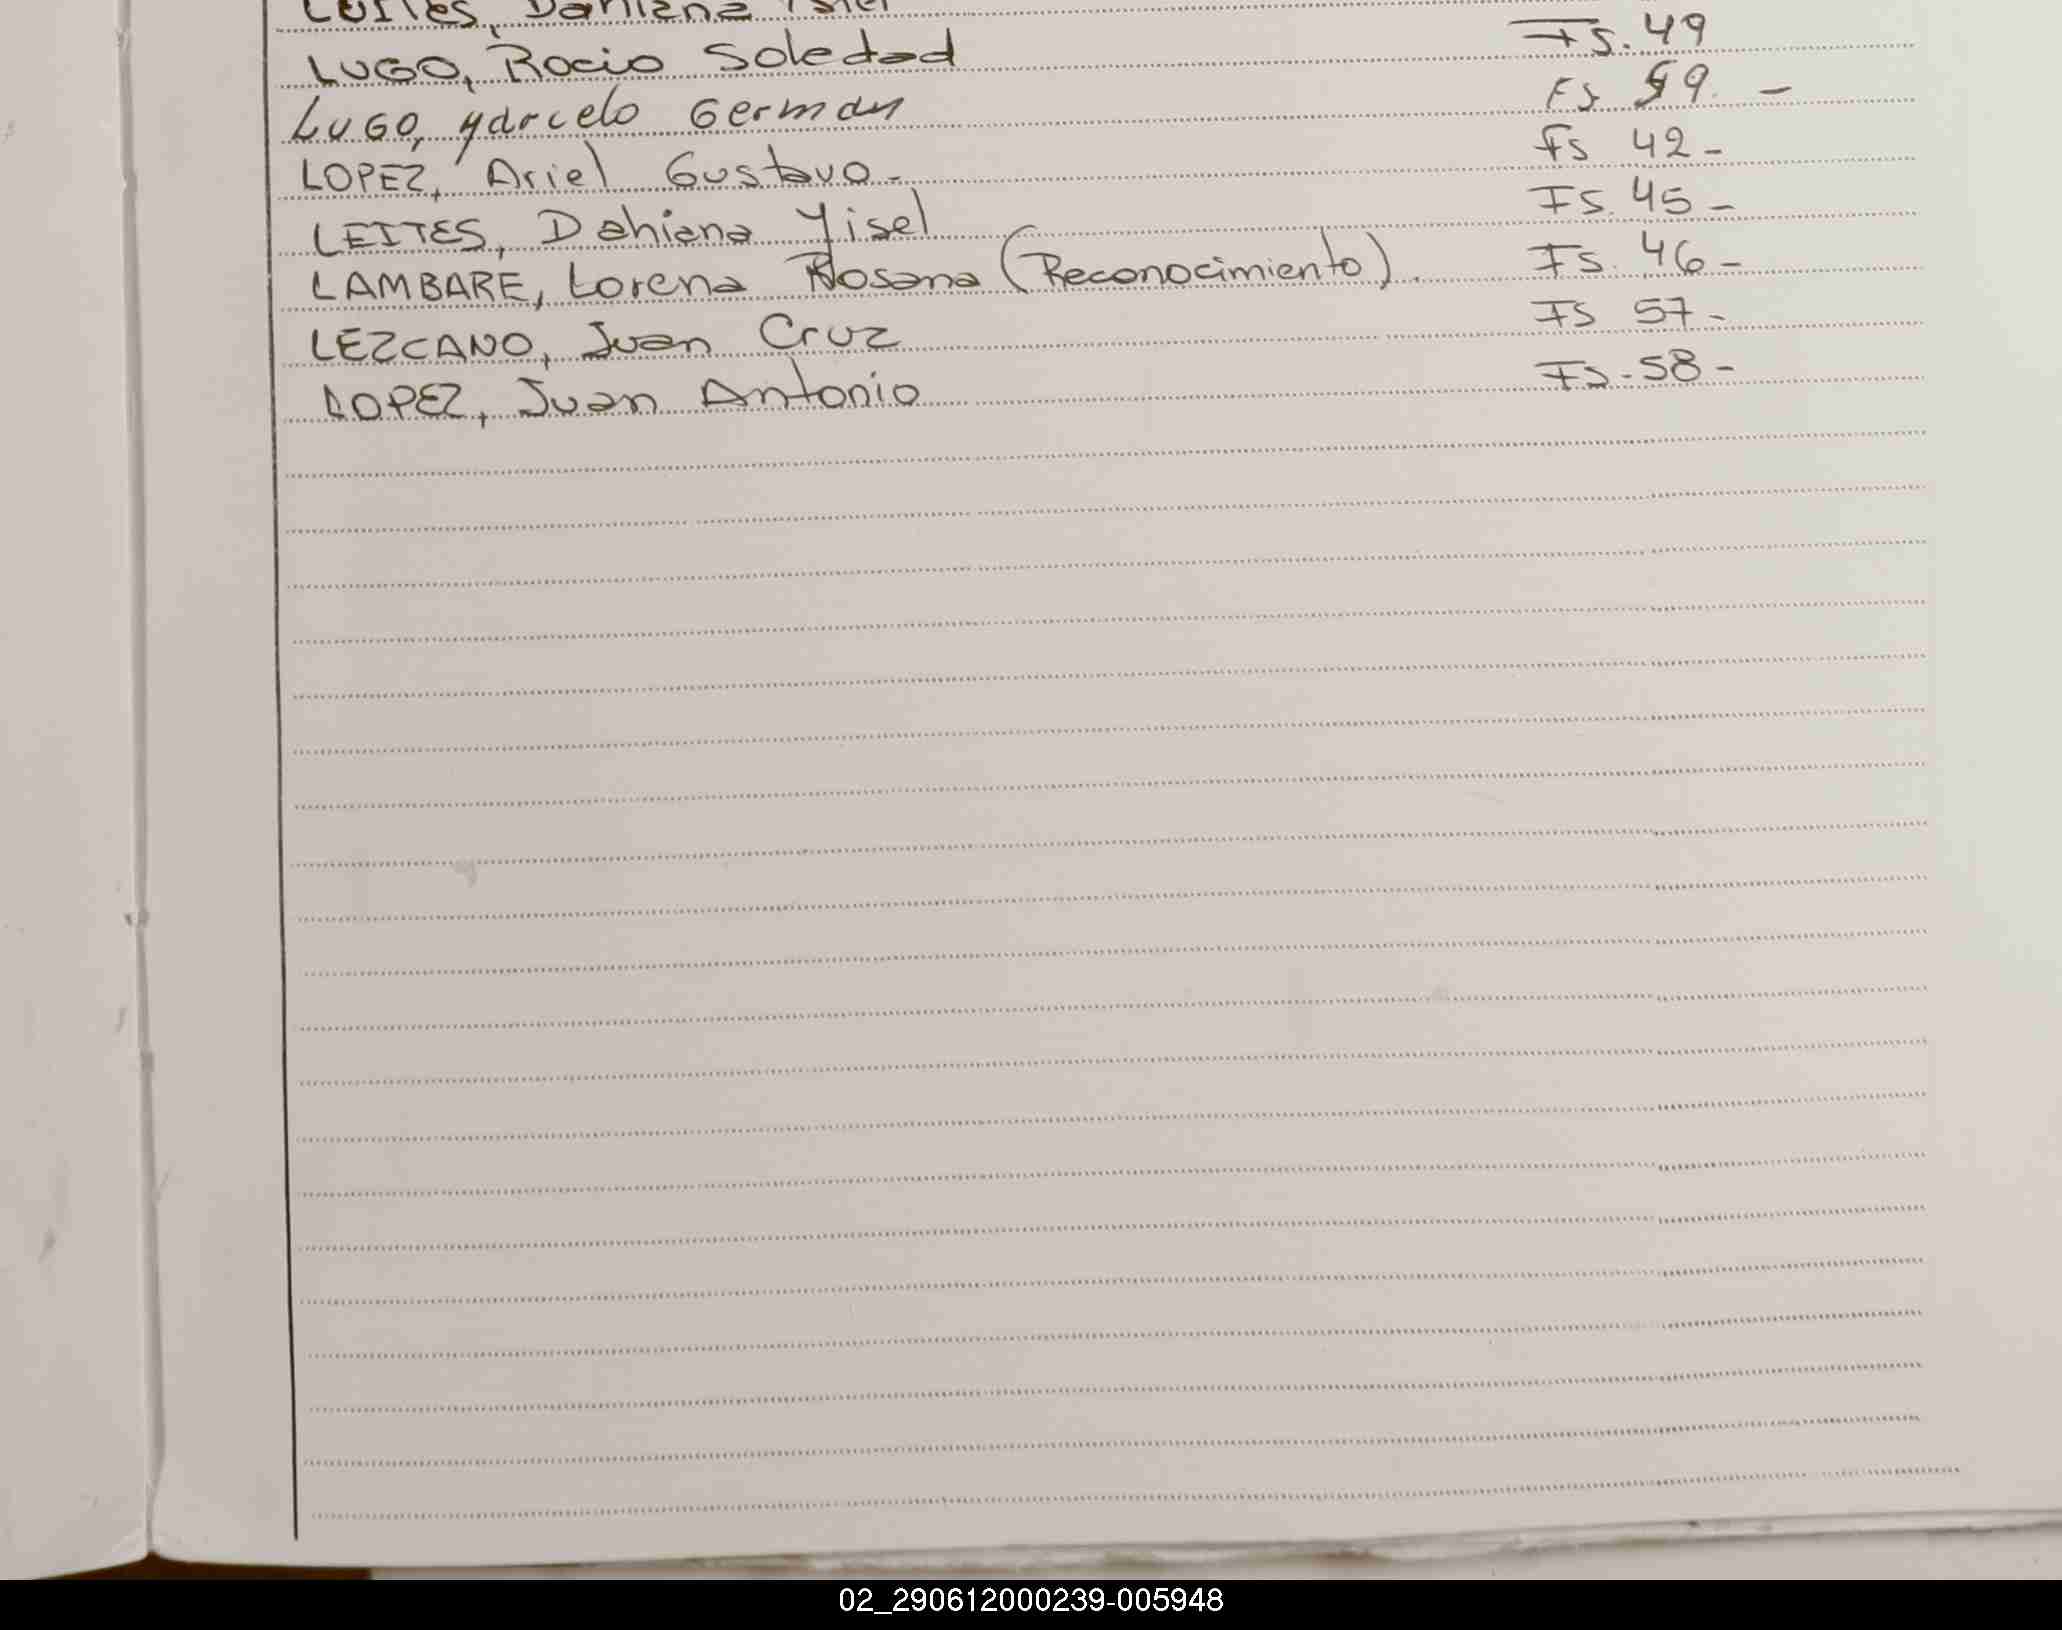 LEITES, Dahiana Yisel
LUGO, Rocio Soledad Fs. 49
LUGO, Marcelo German Fs 59. -
LOPEZ, Ariel Gustavo - Fs 42 -
LEITES, Dahiana Yisel Fs. 45 -
LAMBARE, Lorena Rosana (Reconocimiento). Fs. 46 -
LEZCANO, Juan Cruz Fs 57 -
LOPEZ, Juan Antonio Fs - 58 -
02_290612000239-005948